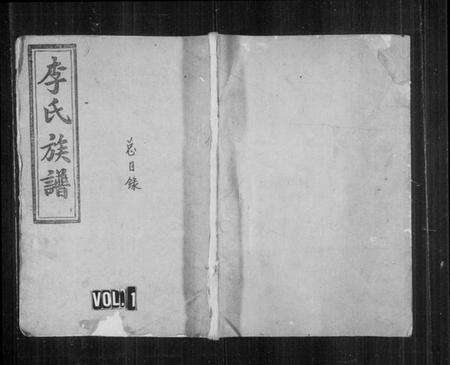 李氏族譜
总目錄
VOL. 1